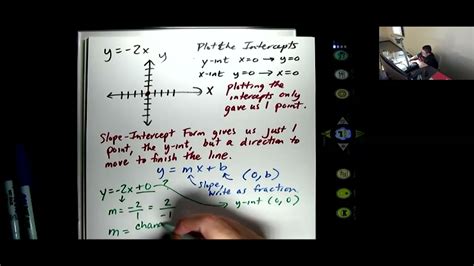 y = -2x
Plot the Intercepts
y-int x=0 → y=0
x-int y=0 → x=0
plotting the
intercepts only
gave us 1 point.
y
x
Slope-Intercept Form gives us just 1
point, the y-int, but a direction to
move to finish the line.
y = mx + b (0, b)
slope,
write as fraction.
y = -2x + 0
y-int (0, 0)
m = -2/1 = 2/-1
m =